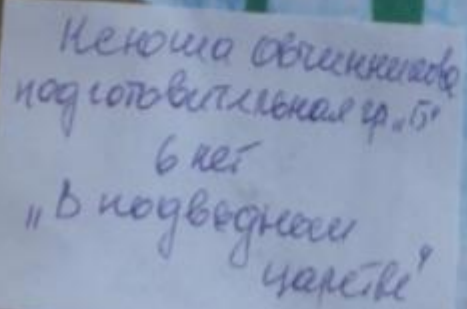 Ксюша Овчинникова
подготовительная гр „Б"
6 лет
„В подводном
царстве"